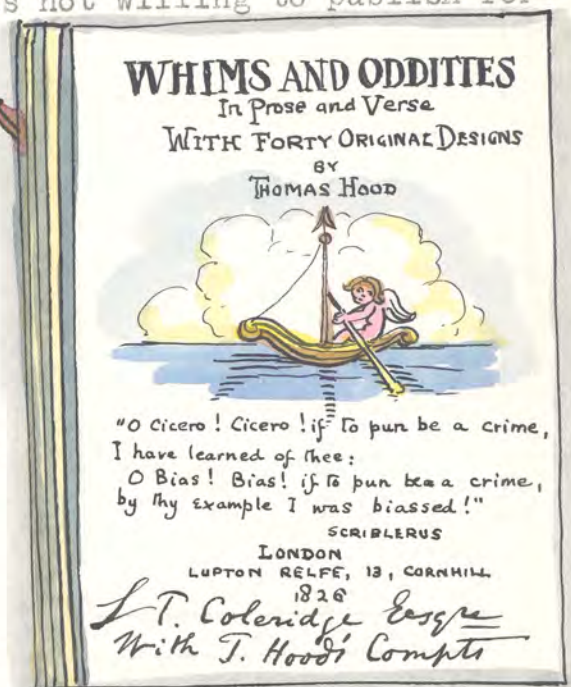 s not willing to publish for
WHIMS AND ODDITIES
In Prose and Verse
WITH FORTY ORIGINAL DESIGNS
BY
THOMAS HOOD
"O Cicero! Cicero! if to pun be a crime,
I have learned of thee:
O Bias! Bias! if to pun be a crime,
by thy example I was biassed!"
SCRIBLERUS
LONDON
LUPTON RELFE, 13, CORNHILL
1826
T. Coleridge Esqre
With T. Hood's Compts